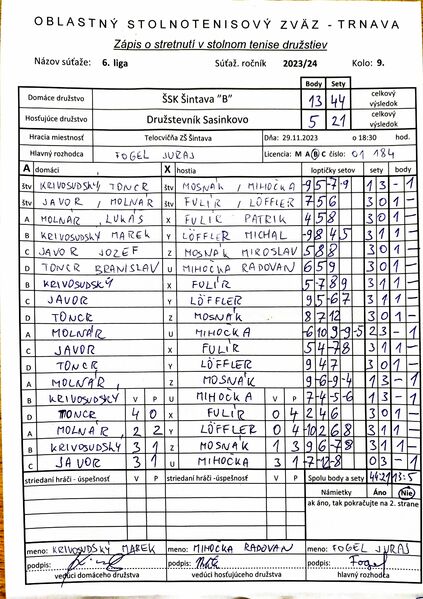 OBLASTNÝ STOLNOTENISOVÝ ZVÄZ - TRNAVA
Zápis o stretnutí v stolnom tenise družstiev
Názov súťaže: 6. liga Súťaž. ročník 2023/24 Kolo: 9.
Body Sety
Domáce družstvo ŠSK Šintava "B" 13 44 celkový výsledok
Hosťujúce družstvo Družstevník Sasinkovo 5 21 celkový výsledok
Hracia miestnosť Telocvičňa ZŠ Šintava Dňa: 29.11.2023 o 18:30 hod.
Hlavný rozhodca FOGEL JURAJ Licencia: M A B C číslo: 01 184
A domáci X hostia loptičky setov sety body
štv KRIVOSUDSKÝ TONCR štv MOSNÁK, MIHOČKA -9 5 -7 -9 1 3 - 1
štv JAVOR, MOLNÁR štv FULÍR, LÖFFLER 7 5 6 3 0 1 -
A MOLNÁR, LUKÁŠ X FULÍR PATRIK 4 5 8 3 0 1 -
B KRIVOSUDSKÝ MAREK Y LÖFFLER MICHAL -9 8 4 5 3 1 1 -
C JAVOR JOZEF Z MOSNÁK MIROSLAV 5 8 8 3 0 1 -
D TONCR BRANISLAV U MIHOČKA RADOVAN 6 5 9 3 0 1 -
B KRIVOSUDSKÝ X FULÍR 5 -7 8 9 3 1 1 -
C JAVOR Y LÖFFLER 9 5 -6 7 3 1 1 -
D TONCR Z MOSNÁK 8 7 12 3 0 1 -
A MOLNÁR U MIHOČKA -6 10 9 -9 -5 2 3 - 1
C JAVOR X FULÍR 5 4 -7 8 3 1 1 -
D TONCR Y LÖFFLER 9 4 7 3 0 1 -
A MOLNÁR, Z MOSNÁK 9 -6 -9 -4 1 3 - 1
B KRIVOSUDSKÝ V P U MIHOČKA V P 7 -4 -5 -6 1 3 - 1
D TONCR 4 0 X FULÍR 0 4 2 4 6 3 0 1 -
A MOLNÁR, 2 2 Y LÖFFLER 0 4 -10 2 6 8 3 1 1 -
B KRIVOSUDSKÝ 3 1 Z MOSNÁK 1 3 9 6 -7 8 3 1 1 -
C JAVOR 3 1 U MIHOČKA 3 1 -7 -12 -8 0 3 - 1
striedaní hráči - úspešnosť V P striedaní hráči - úspešnosť V P Spolu body a sety 44:21 13:5
Námietky Áno Nie
ak áno, tak pokračujte na 2. strane
meno: KRIVOSUDSKÝ MAREK meno: MIHOČKA RADOVAN meno: FOGEL JURAJ
podpis: podpis: podpis: Fogel
vedúci domáceho družstva vedúci hosťujúceho družstva hlavný rozhodca